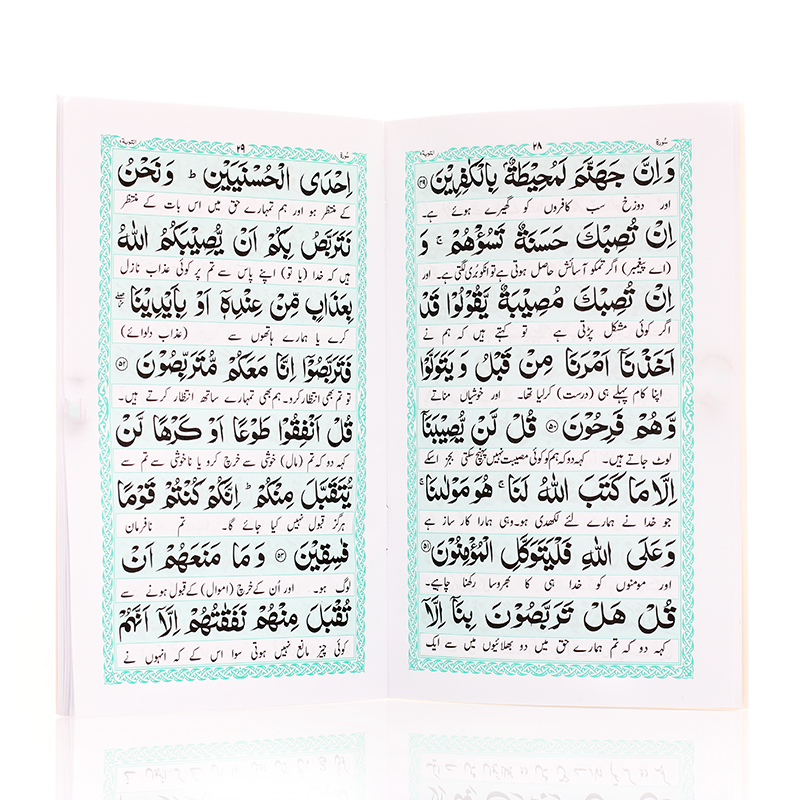 سُورَة ٢٨ التوبة
وَ اِنَّ جَهَنَّمَ لَمُحِيْطَةٌۢ بِالْكٰفِرِيْنَ ﴿۴۹﴾
اور دوزخ سب کافروں کو گھیرے ہوئے ہے۔
اِنْ تُصِبْكَ حَسَنَةٌ تَسُؤْهُمْ ۚ وَ
(اے پیغمبر) اگر تمکو آسائش حاصل ہوتی ہے تو انکو بُری لگتی ہے۔ اور
اِنْ تُصِبْكَ مُصِيْبَةٌ يَّقُوْلُوْا قَدْ
اگر کوئی مشکل پڑتی ہے تو کہتے ہیں کہ ہم نے
اَخَذْنَاۤ اَمْرَنَا مِنْ قَبْلُ وَ يَتَوَلَّوْا
اپنا کام پہلے ہی (درست) کرلیا تھا۔ اور خوشیاں مناتے
وَّ هُمْ فَرِحُوْنَ ﴿۵۰﴾ قُلْ لَّنْ يُّصِيْبَنَاۤ
لوٹ جاتے ہیں۔ کہہ دو کہ ہم کو کوئی مصیبت نہیں پہنچ سکتی بجز اسکے
اِلَّا مَا كَتَبَ اللّٰهُ لَنَا ۚ هُوَ مَوْلٰىنَا ۚ
جو خدا نے ہمارے لئے لکھدی ہو۔ وہی ہمارا کار ساز ہے
وَ عَلَى اللّٰهِ فَلْيَتَوَكَّلِ الْمُؤْمِنُوْنَ ﴿۵۱﴾
اور مومنوں کو خدا ہی کا بھروسا رکھنا چاہیے۔
قُلْ هَلْ تَرَبَّصُوْنَ بِنَاۤ اِلَّاۤ
کہہ دو کہ تم ہمارے حق میں دو بھلائیوں میں سے ایک
سُورَة ٢٩ التوبة
اِحْدَى الْحُسْنَيَيْنِ ؕ وَ نَحْنُ
کے منتظر ہو اور ہم تمہارے حق میں اس بات کے منتظر
نَتَرَبَّصُ بِكُمْ اَنْ يُّصِيْبَكُمُ اللّٰهُ
ہیں کہ خدا (یا تو) اپنے پاس سے تم پر کوئی عذاب نازل
بِعَذَابٍ مِّنْ عِنْدِهٖۤ اَوْ بِاَيْدِيْنَا ۖ
کرے یا ہمارے ہاتھوں سے (عذاب دلوائے)
فَتَرَبَّصُوْۤا اِنَّا مَعَكُمْ مُّتَرَبِّصُوْنَ ﴿۵۲﴾
تو تم بھی انتظار کرو۔ ہم بھی تمہارے ساتھ انتظار کرتے ہیں۔
قُلْ اَنْفِقُوْا طَوْعًا اَوْ كَرْهًا لَّنْ
کہہ دو کہ تم (مال) خوشی سے خرچ کرو یا ناخوشی سے تم سے
يُّتَقَبَّلَ مِنْكُمْ ؕ اِنَّكُمْ كُنْتُمْ قَوْمًا
ہرگز قبول نہیں کیا جائے گا۔ تم نافرمان
فٰسِقِيْنَ ﴿۵۳﴾ وَ مَا مَنَعَهُمْ اَنْ
لوگ ہو۔ اور اُن کے خرچ (اموال) کے قبول ہونے سے
تُقْبَلَ مِنْهُمْ نَفَقٰتُهُمْ اِلَّاۤ اَنَّهُمْ
کوئی چیز مانع نہیں ہوتی سوا اس کے کہ انہوں نے